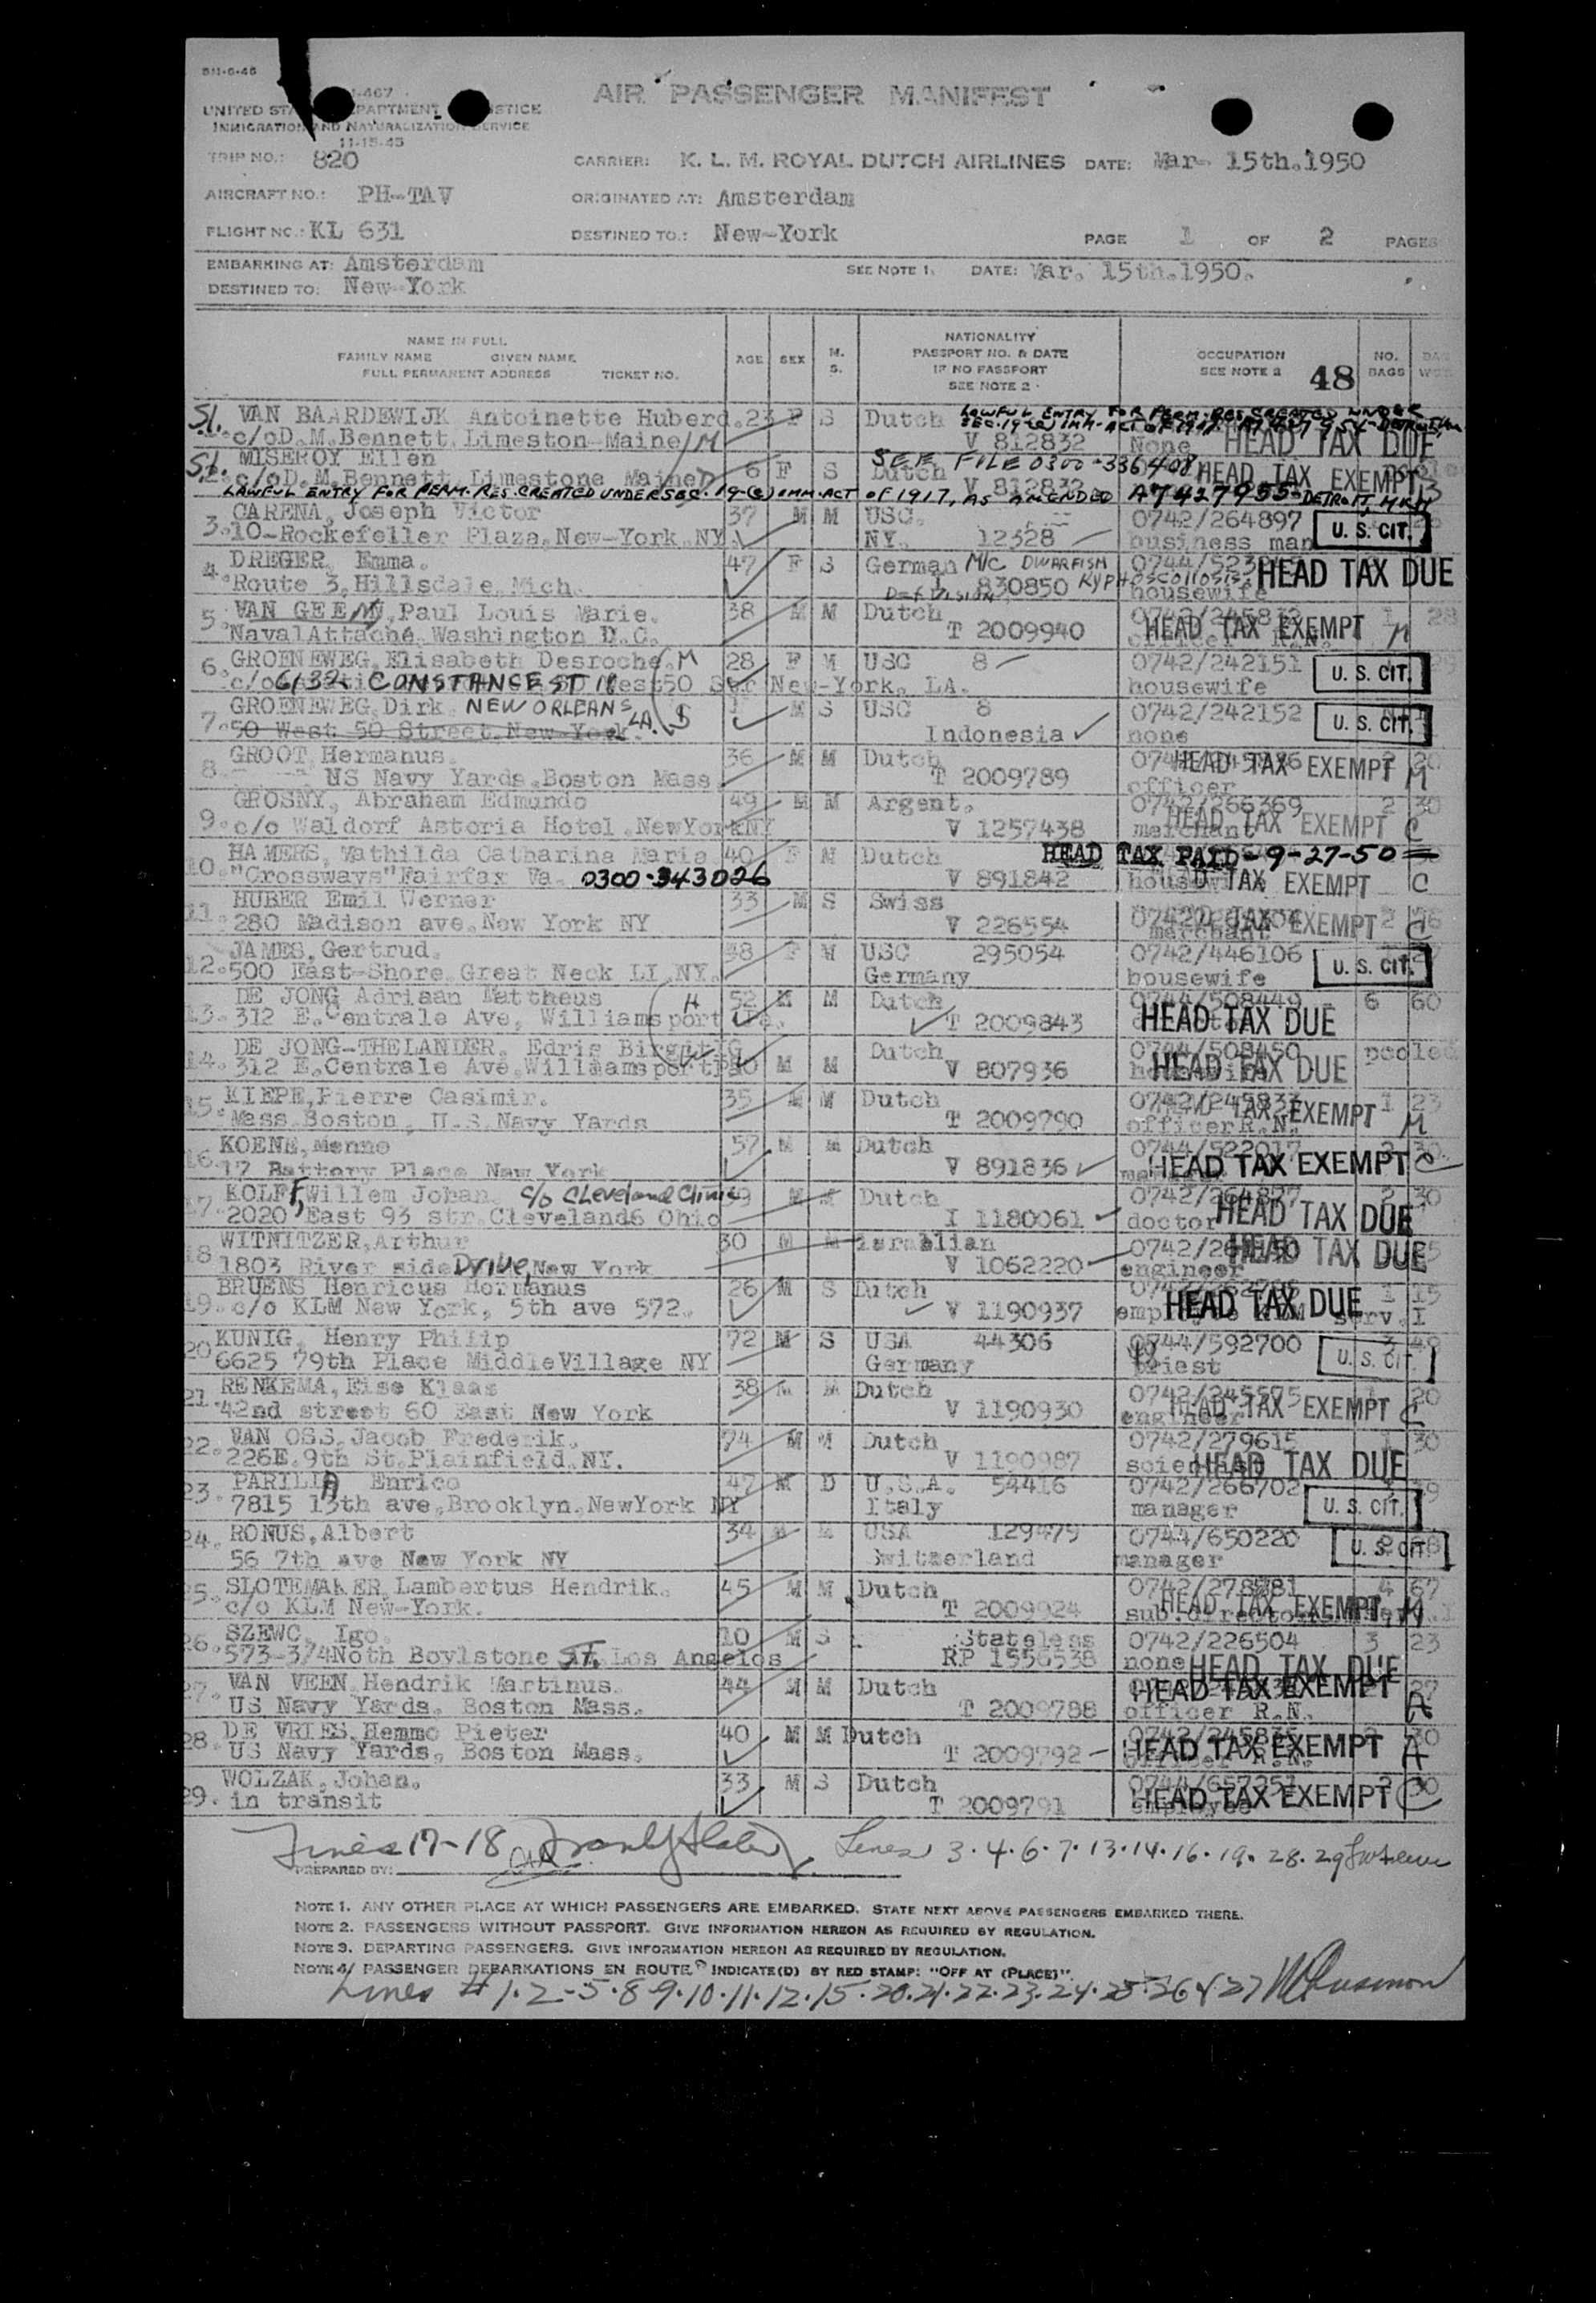 AIR PASSENGER MANIFEST
INMIGRATION AND NATURALIZATION SERVICE
11-15-45
TRIP NO.: 820 CARRIER: K. L. M. ROYAL DUTCH AIRLINES DATE: Mar- 15th.1950
AIRCRAFT NO.: PH-TAV ORIGINATED AT: Amsterdam
FLIGHT NO.: KL 631 DESTINED TO.: New-York PAGE 1 OF 2 PAGES
EMBARKING AT: Amsterdam SEE NOTE 1. DATE: Mar. 15th.1950.
DESTINED TO: New-York
NAME IN FULL
FAMILY NAME GIVEN NAME
FULL PERMANENT ADDRESS TICKET NO.
AGE SEX M. S.
NATIONALITY
PASSPORT NO. & DATE
IF NO PASSPORT
SEE NOTE 2
OCCUPATION
SEE NOTE 2 48
NO. BAGS
VAN BAARDEWIJK Antoinette Huberd. 23 F S Dutch LAWFUL ENTRY FOR PERM. RES. CREATED UNDER
c/o D.M.Bennett Limeston-Maine V 812832 None HEAD TAX DUE
MISEROY Ellen 6 F S Dutch SEE FILE 0300-336408
c/o D.M.Bennett Limestone Maine V 812832 HEAD TAX EXEMPT
LAWFUL ENTRY FOR PERM. RES. CREATED UNDER SEC. 19(c) IMM. ACT OF 1917, AS AMENDED A7427955-DETROIT,
3. CARENA, Joseph Victor 37 M M USC. 0742/264897
10-Rockefeller Plaza.New-York NY. NY. 12328 business man U. S. CIT.
4. DREGER, Emma. 47 F S German M/C DWARFISM
Route 3,Hillsdale Mich. 830850 housewife HEAD TAX DUE
5. VAN GEEN,Paul Louis Marie. 38 M M Dutch 0742/245832 1 28
NavalAttaché Washington D.C. T 2009940 officer R.N. HEAD TAX EXEMPT M
6. GROENEWEG,Elisabeth Desroche. M 28 F M USC 8 0742/242151
c/o 6132 CONSTANCE ST 18 New-York. LA. housewife U. S. CIT.
7. GROENEWEG,Dirk. NEW ORLEANS LA. M S USC 8 0742/242152
50 West 50 Street New-York Indonesia none U. S. CIT.
8. GROOT,Hermanus. 36 M M Dutch HEAD TAX EXEMPT M
US Navy Yards.Boston Mass. T 2009789 officer
9. GROSNY, Abraham Edmundo 49 M M Argent. 0742/266369 2 30
c/o Waldorf Astoria Hotel.NewYorkNY V 1257438 merchant HEAD TAX EXEMPT C
10. HAMERS, Mathilda Catharina Maria 40 F M Dutch HEAD TAX PAID-9-27-50
"Crossways"Fairfax Va. 0300-343026 V 891842 HEAD TAX EXEMPT C
11. HUBER Emil Werner 33 M S Swiss
280 Madison ave.New York NY V 226554 merchant HEAD TAX EXEMPT C
12. JAMES,Gertrud. 38 F M USC 295054 0742/446106
500 East-Shore.Great Neck LI NY. Germany housewife U. S. CIT.
13. DE JONG Adriaan Mattheus H 52 M M Dutch 0744/508449 6 60
312 E.Centrale Ave, Williamsport Pa. T 2009843 HEAD TAX DUE
14. DE JONG-THELANDER, Edris Birgit Dutch 0744/508450 pooled
312 E.Centrale Ave.Williamsport M M V 807936 HEAD TAX DUE
15. KIEPE,Pierre Casimir. 35 M M Dutch 0742/245833 1 23
Mass.Boston, U.S.Navy Yards T 2009790 officer R.N. HEAD TAX EXEMPT M
16. KOENE,Menno 57 M M Dutch 0744/522017
17 Battery Place New York V 891836 HEAD TAX EXEMPT C
17. KOLFF,Willem Johan. c/o Cleveland Clinic 39 M M Dutch 0742/264827 2 30
2020 East 93 str.Cleveland6 Ohio I 1180061 doctor HEAD TAX DUE
18. WITNITZER,Arthur 30 M M Israelian HEAD TAX DUE
1803 River side Drive,New York V 1062220 engineer
19. BRUENS Henricus Hormanus 26 M S Dutch 1 15
c/o KLM New York, 5th ave 572. V 1190937 HEAD TAX DUE serv.I
20. KUNIG, Henry Philip 72 M S USA 44306 0744/592700
6625 79th Place MiddleVillage NY Germany priest U. S. CIT.
21. RENKEMA,Eise Klaas 38 M M Dutch 0742/245575 20
42nd street 60 East New York V 1190930 engineer HEAD TAX EXEMPT C
22. VAN OSS.Jacob Frederik. 74 M M Dutch 0742/279615 1 30
226E.9th St.Plainfield.NY. V 1190987 HEAD TAX DUE
23. PARILIA Enrico 47 M D U.S.A. 54416 0742/266702
7815 13th ave.Brooklyn.NewYork NY Italy manager U. S. CIT.
24. RONUS,Albert 34 M M USA 129479 0744/650220
56 7th ave New York NY Switzerland manager U. S. CIT.
25. SLOTEMAKER,Lambertus Hendrik. 45 M M Dutch 4 67
c/o KLM New-York. T 2009924 sub.director HEAD TAX EXEMPT
26. SZEWC, Igo. 10 M S Stateless 0742/226504 3 23
573-3/4Noth Boylstone ST. Los Angelos RP 1556538 none HEAD TAX DUE
27. VAN VEEN.Hendrik Martinus. 44 M M Dutch HEAD TAX EXEMPT 27
US Navy Yards. Boston Mass. T 2009788 officer R.N. A
28. DE VRIES,Hemmo Pieter 40 M M Dutch 0742/245835 30
US Navy Yards, Boston Mass. T 2009792 HEAD TAX EXEMPT A
29. WOLZAK,Johan. 33 M S Dutch 0744/657251 2 30
in transit T 2009791 employee HEAD TAX EXEMPT C
Lines 17-18 Lines 3.4.6.7.13.14.16.19.28.29
PREPARED BY:
NOTE 1. ANY OTHER PLACE AT WHICH PASSENGERS ARE EMBARKED. STATE NEXT ABOVE PASSENGERS EMBARKED THERE.
NOTE 2. PASSENGERS WITHOUT PASSPORT. GIVE INFORMATION HEREON AS REQUIRED BY REGULATION.
NOTE 3. DEPARTING PASSENGERS. GIVE INFORMATION HEREON AS REQUIRED BY REGULATION.
NOTE 4/ PASSENGER DEBARKATIONS EN ROUTE. INDICATE(D) BY RED STAMP: "OFF AT (PLACE)".
Lines # 1.2-5.8-9.10.11.12.15.20.21.22.23.24.25.26 & 27